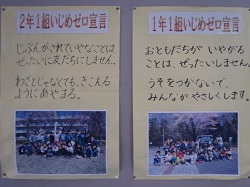 2年1組いじめゼロ宣言
じぶんがされていやなことは
ぜったいに友だちにしません。
わざとじゃなくても、きこえる
ようにあやまる。
1年1組いじめゼロ宣言
おともだちが いやがる
ことは、ぜったいしません。
うそをつかないで、
みんながやさしくします。